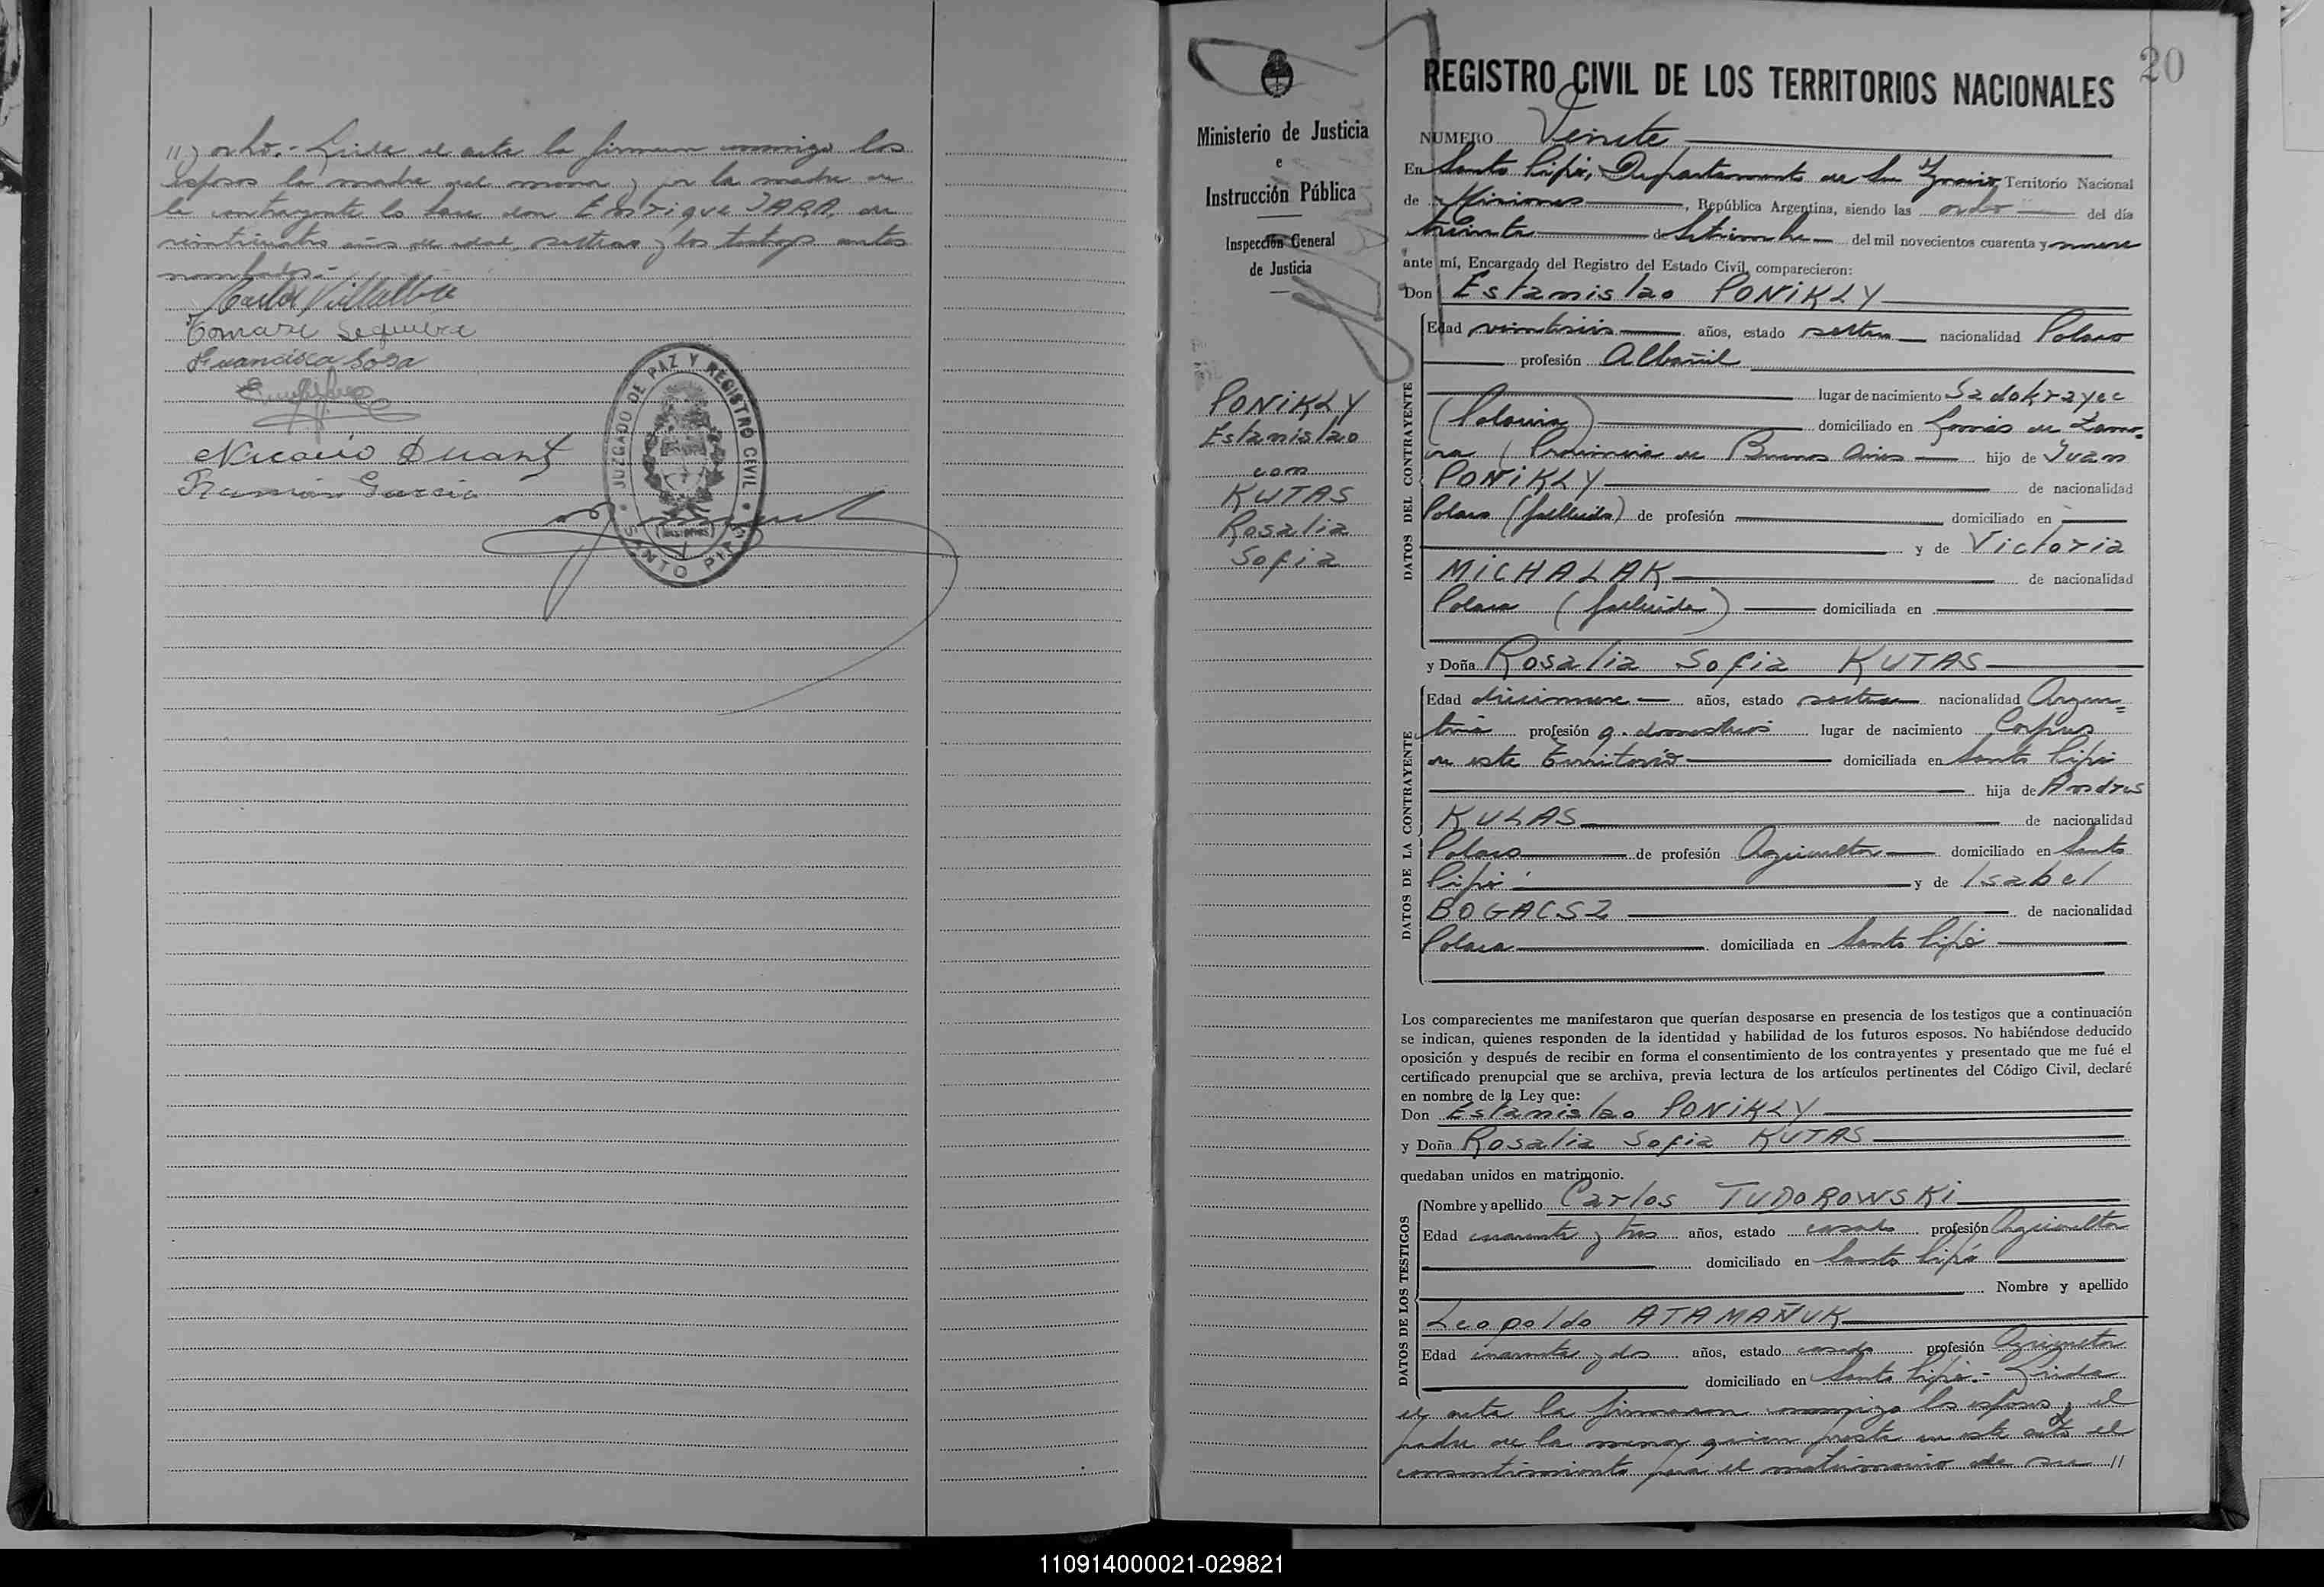 //) ocho.- Leida el acta la firman conmigo los
esposos la madre del menor y por la madre de
la contrayente lo hace don Enrique JARA, de
veinticuatro años de edad, soltero y los testigos antes
nombrados.-
Carlos Villalba
Tomasa Sequeira
Francisca Sosa
Nicacio Duart
Ramón Garcia
JUZGADO DE PAZ Y REGISTRO CIVIL
SANTO PIPÓ
(MISIONES)
20
Ministerio de Justicia
e
Instrucción Pública
Inspección General
de Justicia
PONIKLY
Estanislao
con
KUTAS
Rosalia
Sofia
REGISTRO CIVIL DE LOS TERRITORIOS NACIONALES
NUMERO Veinte
En Santo Pipó, Departamento de San Ignacio Territorio Nacional
de Misiones, República Argentina, siendo las ocho del día
treinta de Setiembre del mil novecientos cuarenta y nueve
ante mí, Encargado del Registro del Estado Civil, comparecieron:
Don Estanislao PONIKLY
DATOS DEL CONTRAYENTE
Edad veintiseis años, estado soltero nacionalidad Polaco
profesión Albañil
lugar de nacimiento Sadokrayec
(Polonia) domiciliado en Lomas de Zamo=
ra (Provincia de Buenos Aires hijo de Juan
PONIKLY de nacionalidad
Polaco (fallecido) de profesión domiciliado en
y de Victoria
MICHALAK de nacionalidad
Polaca (fallecida) domiciliada en
y Doña Rosalia Sofia KUTAS
DATOS DE LA CONTRAYENTE
Edad diecinueve años, estado soltera nacionalidad Argen=
tina profesión q. domesticos lugar de nacimiento Corpus
en este Territorio domiciliada en Santo Pipó
hija de Andres
KULAS de nacionalidad
Polaco de profesión Agricultor domiciliado en Santo
Pipó y de Isabel
BOGACSZ de nacionalidad
Polaca domiciliada en Santo Pipó
Los comparecientes me manifestaron que querían desposarse en presencia de los testigos que a continuación
se indican, quienes responden de la identidad y habilidad de los futuros esposos. No habiéndose deducido
oposición y después de recibir en forma el consentimiento de los contrayentes y presentado que me fué el
certificado prenupcial que se archiva, previa lectura de los artículos pertinentes del Código Civil, declaré
en nombre de la Ley que:
Don Estanislao PONIKLY
y Doña Rosalia Sofia KUTAS
quedaban unidos en matrimonio.
DATOS DE LOS TESTIGOS
Nombre y apellido Carlos TUDOROWSKI
Edad cuarenta y tres años, estado casado profesión Agricultor
domiciliado en Santo Pipó
Nombre y apellido
Leopoldo ATAMAÑUK
Edad cuarenta y dos años, estado casado profesión Agricultor
domiciliado en Santo Pipó.- Leida
el acta la firmaron conmigo los esposos, el
padre de la menor quien presta en este acto el
consentimiento para el matrimonio de su //
110914000021-029821